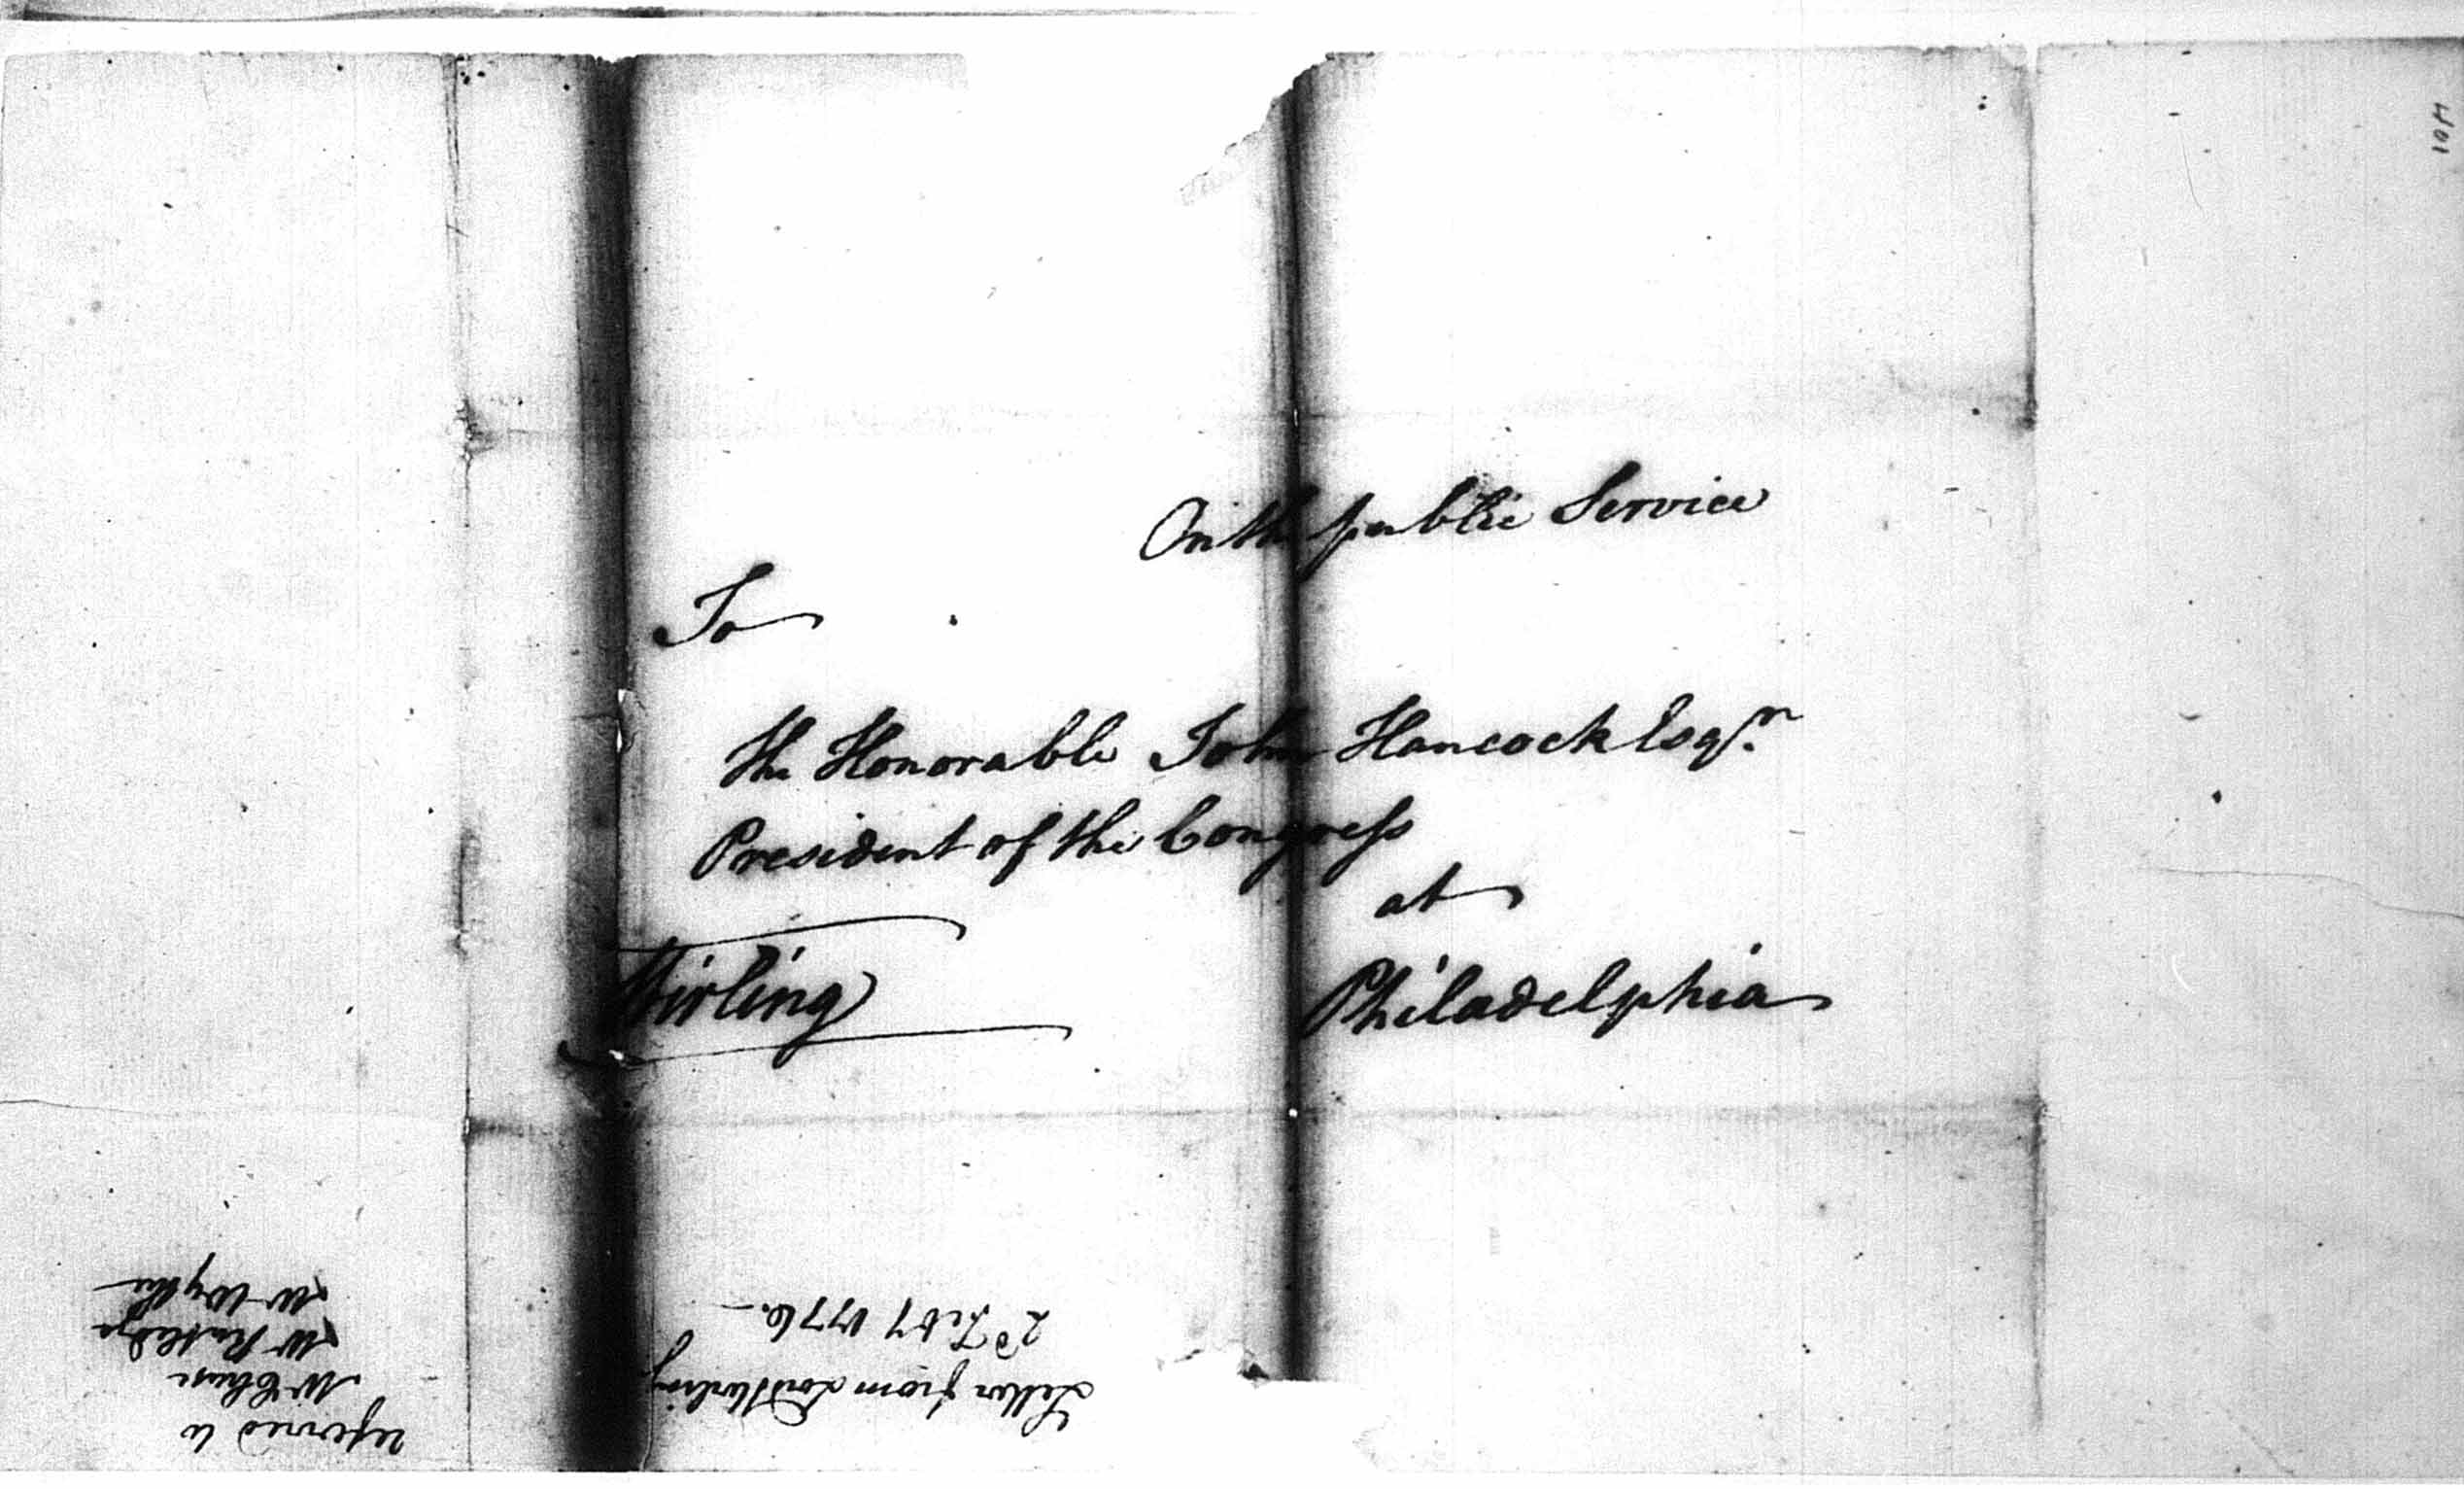 On the public Service
To
The Honorable John Hancock Esqr.
President of the Congress
at
Stirling
Philadelphia
Letter from Lord Stirling
2d Feby 1776.
referred to
Mr Chase
Mr Rutledge
Mr Wythe